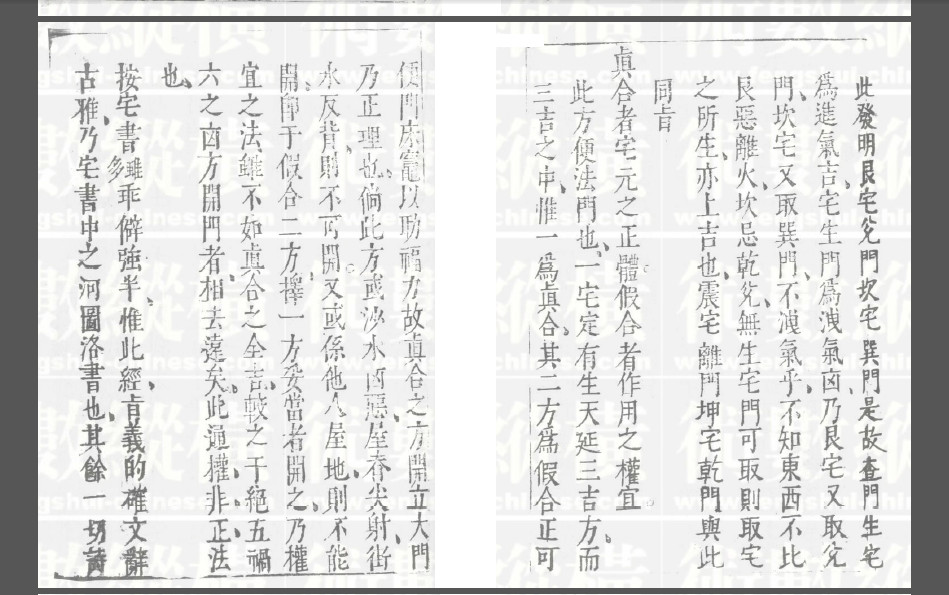 此發明艮宅兌門坎宅巽門是故查門生宅
爲進氣吉宅生門爲洩氣凶乃艮宅又取兌
門坎宅又取巽門不洩氣乎不知東西不比
艮惡離火坎忌乾兌無生宅門可取則取宅
之所生亦上吉也震宅離門坤宅乾門與此
同旨
眞合者宅元之正體假合者作用之權宜
此方便法門也一宅定有生天延三吉方而
三吉之中惟一爲眞合其二方爲假合正可
便門床竈以助福力故眞合之方開立大門
乃正理也倘此方或沙水凶惡屋脊尖射街
水反背則不可開又或係他人屋地則不能
開卽于假合二方擇一方妥當者開之乃權
宜之法雖不如眞合之全吉較之于絕五禍
六之凶方開門者相去遠矣此通權非正法
也
按宅書雖多乖僻強半惟此經肯義的確文辭
古雅乃宅書中之河圖洛書也其餘一切